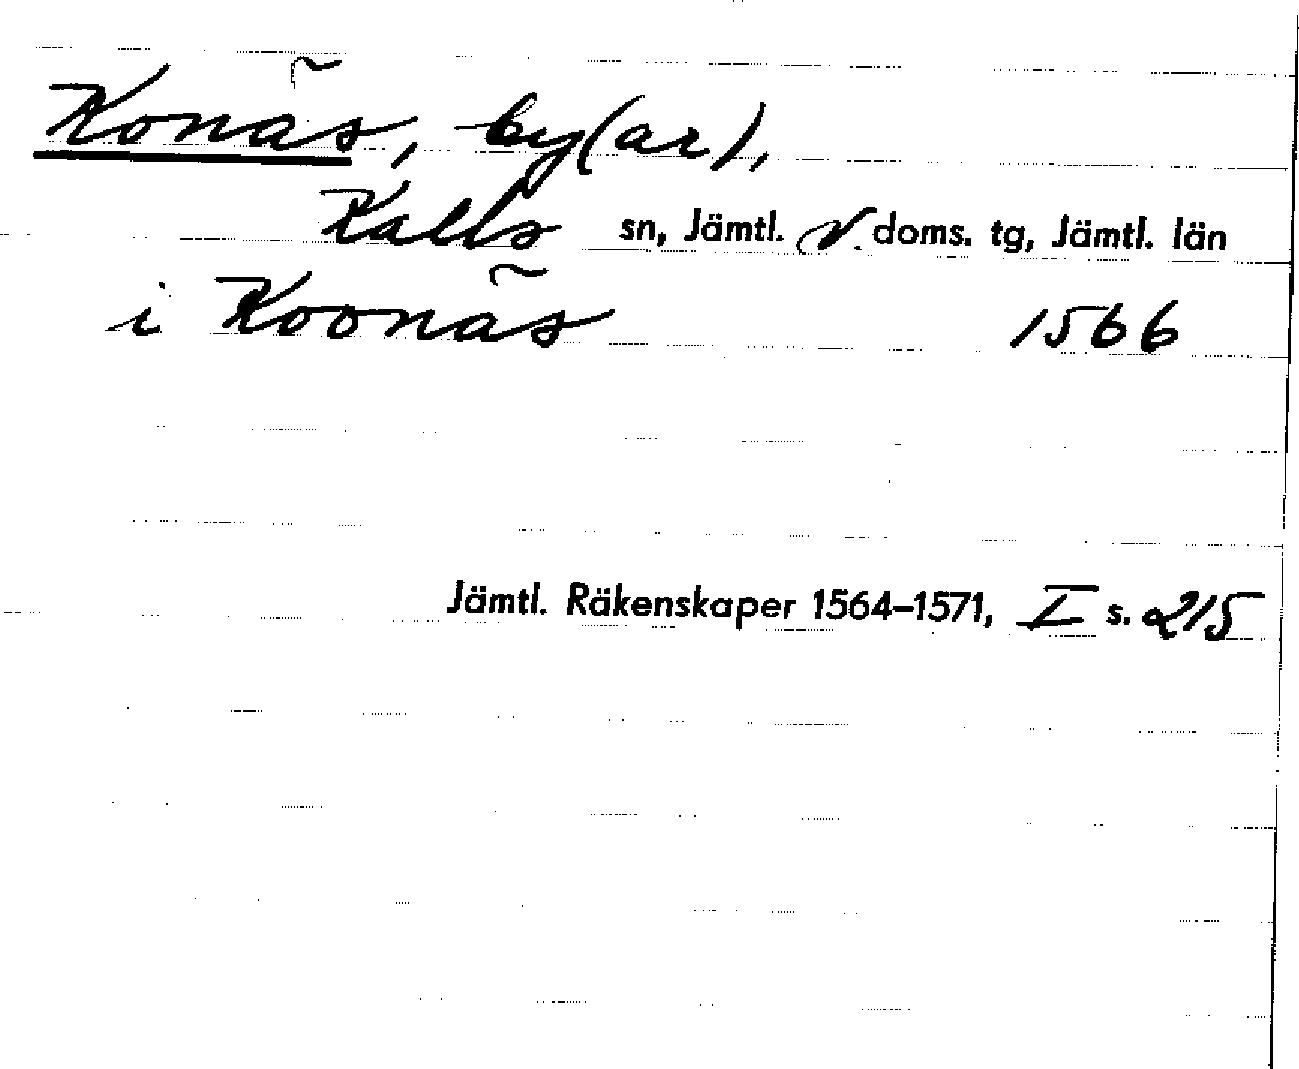 Konäs, by(ar),
Kalls sn, Jämtl. v. doms. tg, Jämtl. län
i Koonäs 1566
Jämtl. Räkenskaper 1564–1571, I s. 215